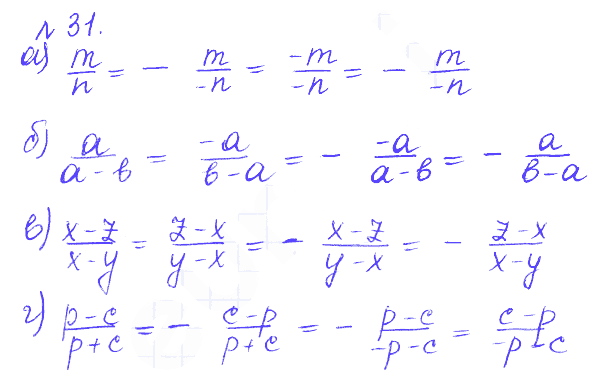 № 31.
а) m/n = - m/-n = -m/-n = - m/-n
б) a/a-b = -a/b-a = - -a/a-b = - a/b-a
в) x-z/x-y = z-x/y-x = - x-z/y-x = - z-x/x-y
г) p-c/p+c = - c-p/p+c = - p-c/-p-c = c-p/-p-c